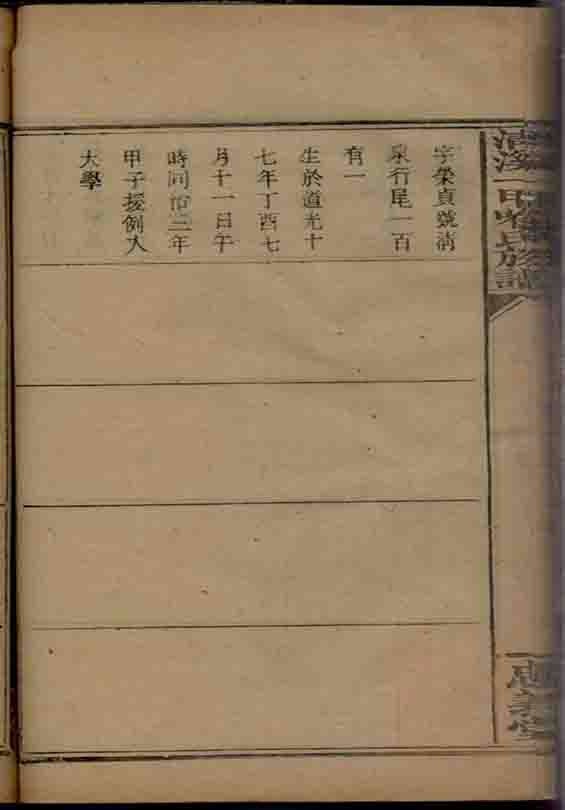 字榮貞號淸
泉行尾一百
有一
生於道光十
七年丁酉七
月十一日午
時同治三年
甲子援例入
大學
清溪
氏族譜
惠義堂